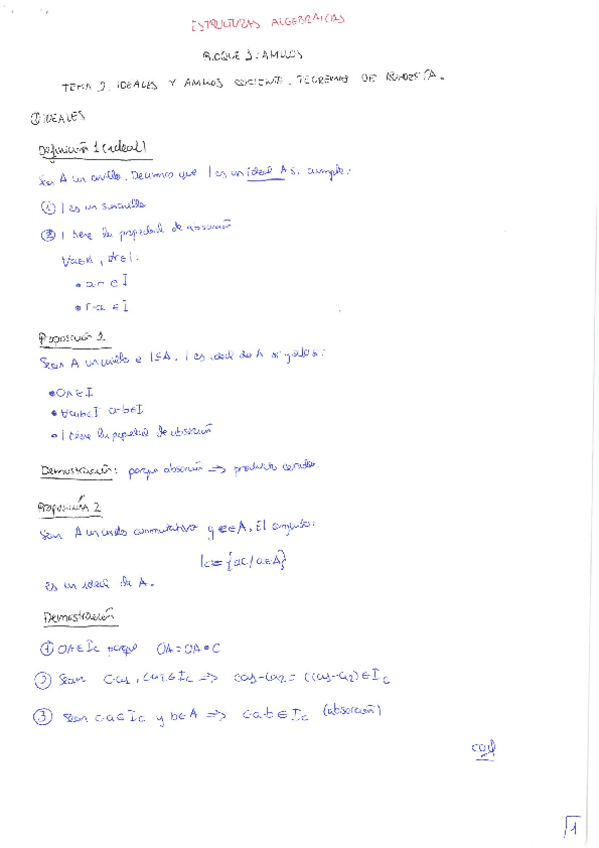 ESTRUCTURAS ALGEBRAICAS
BLOQUE 3: ANILLOS
TEMA 2. IDEALES Y ANILLOS COCIENTE. TEOREMAS DE ISOMORFÍA.
① IDEALES
Definición 1 (ideal)
Sea A un anillo. Decimos que I es un ideal A si cumple:
① I es un subanillo
② I tiene la propiedad de absorción
∀a∈A, ∀r∈I.
• a·r ∈ I
• r·a ∈ I
Proposición 1.
Sean A un anillo e I⊆A. I es ideal de A si y sólo si:
• 0A∈I
• ∀a,b∈I a-b∈I
• I tiene la propiedad de absorción
Demostración: porque absorción ⇒ producto cerrado.
Proposición 2
Sean A un anillo conmutativo y c∈A. El conjunto:
Ic={ac/a∈A}
es un ideal de A.
Demostración
① 0A∈Ic porque 0A=0A•C
② Sean ca1, ca2∈Ic ⇒ ca1-ca2= c(a1-a2)∈Ic
③ Sean ca∈Ic y b∈A ⇒ cab∈Ic (absorción)
cqd
1